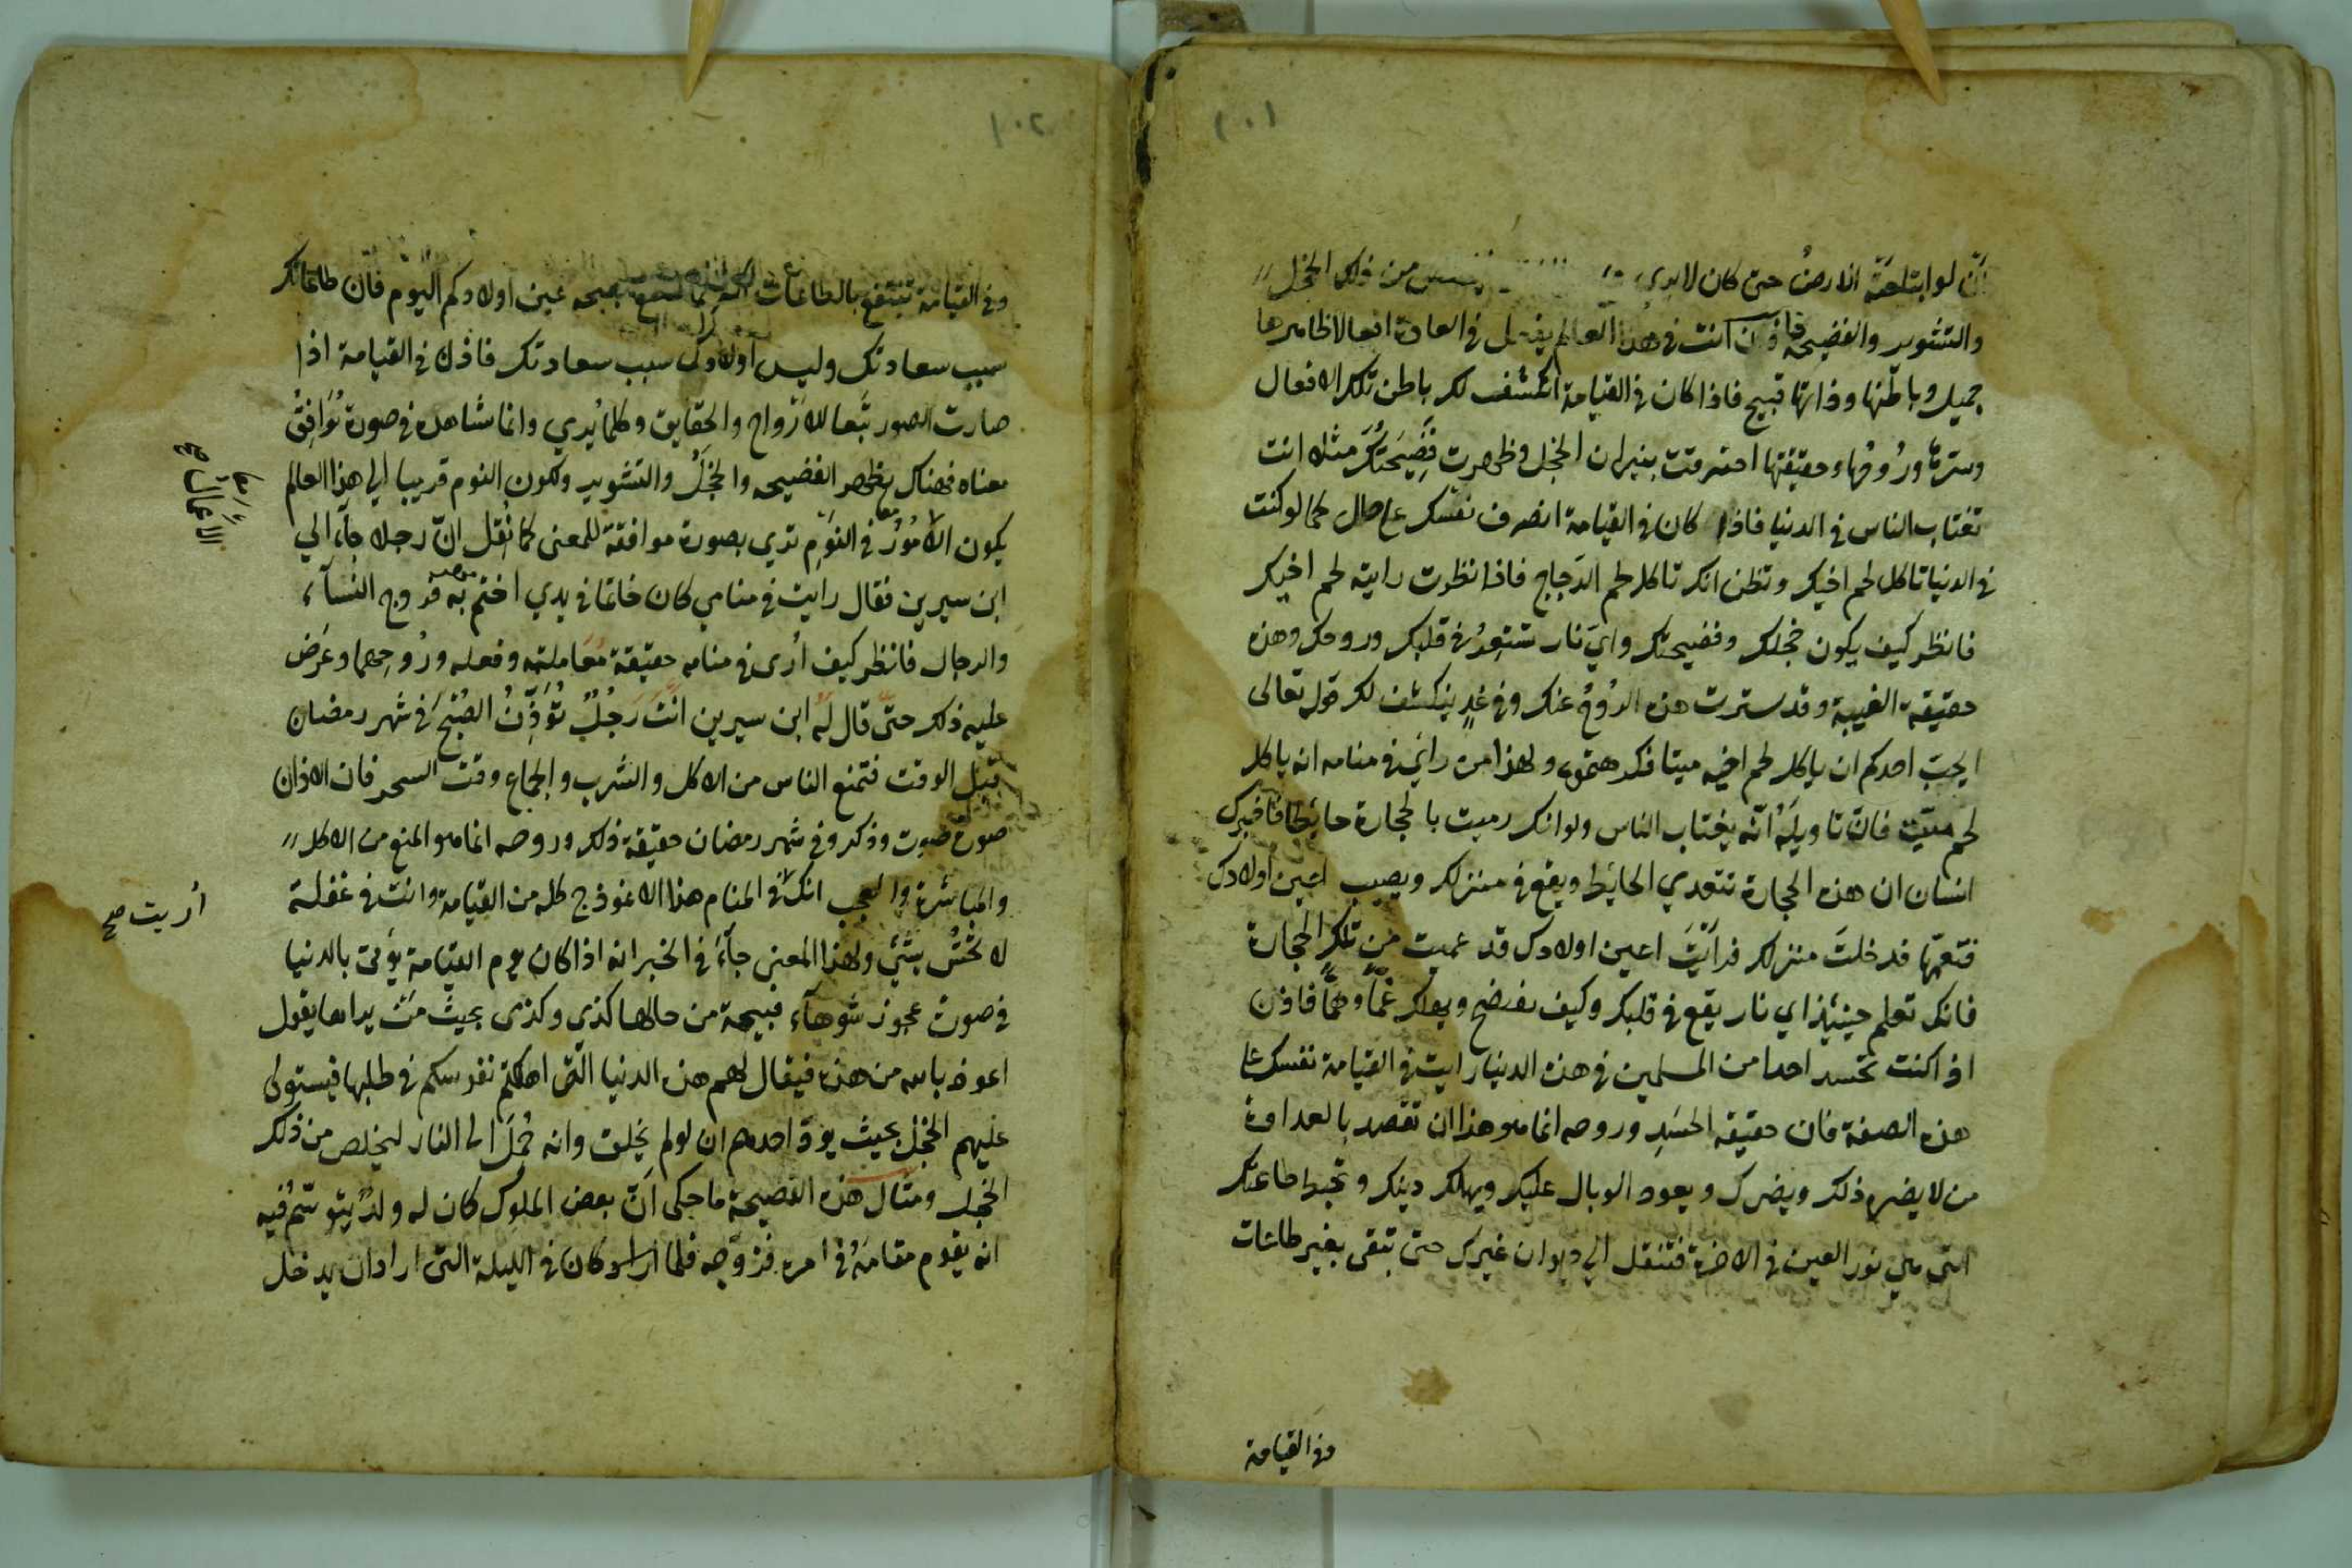 ١٠١
انّ لو ابتلعته الارضُ حتى كان لا يدري من ذلك الخجل
والتشوير والفضيحة فاذن انت في هذا العالم يفعل في العادة افعالا ظاهرها
جميل وباطنها وذاتها قبيح فاذا كان في القيامة انكشف لك باطن تلك الافعال
وسترها وروحها وحقيقتها احترقت بنيران الخجل وظهرت فَضِيحَتُكَ مثلا انت
تغتاب الناس في الدنيا فاذا كان في القيامة انصرف نفسك على حال كما لو كنت
في الدنيا تاكل لحم اخيك وتظن انك تاكل لحم الدجاج فاذا نظرت رايته لحم اخيك
فانظر كيف يكون خجلك وفضيحتك وايّ نار تتقد في قلبك وروحك وهذه
حقيقة الغيبة وقد سترت هذه الرُوحُ عنك وفي غدٍ ينكشف لك قوله تعالى
ايحبّ احدكم ان ياكل لحم اخيه ميتا فكرهتموه ولهذا من راي في منامه انه ياكل
لحم ميّت فانّ تاويلَهُ انّه يغتاب الناس ولو انك رميت بالحجارة حايطا فاخبرك
انسان ان هذه الحجارة تتعدي الحايط ويقع في منزلك ويصيب اعين اولادك
فقمتَ فدخلتَ منزلك فرأيتَ اعين اولادك قد عميت من تلك الحجارة
فانك تعلم حينئذ اي نار يقع في قلبك وكيف نفتضح ويعلك غمّاً وهمّاً فاذن
اذا كنت تحسد احدا من المسلمين في هذه الدنيا رايت في القيامة نفسك على
هذه الصفة فان حقيقة الحَسَدِ وروحه انما هو هذا ان تقصد بالعداوة
من لا يضره ذلك ويضرك ويعود الوبال عليك ويهلك دينك وتحبط طاعتك
التي هي نور العين في الاخرة فتنقل الي ديوان غيرك حتى تبقى بغير طاعات
وفي القيامة
١٠٢
وفي القيامة تنتفع بالطاعات اكثر مما تنتفع بصحة عين اولادكم اليوم فان طاعاتك
سبب سعادتك وليس اولادك سبب سعادتك فاذن في القيامة اذا
صارت الصور تَبعا للارواح والحقايق وكلما يُدري وانما شاهده في صورة تُوَافِقُ
معناه فهناك يظهر الفضيحه والخجَلُ والتشوير ولكون النوم قريبا الي هذا العالم
يكون الاُمُورُ في النوم تري بصورة موافقة للمعنى كما نُقل انّ رجلا جاء الي
ابن سيرين فقال رايت في منامي كان خاتما في يدي اختم به فروج النساء
والرجال فانظر كيف اُرى في منامه حقيقة مُعاملته وفعله ورُوحهما وعَرض
عليه ذلك حتّى قال لهُ ابن سيرين انتَ رَجُلٌ تُؤَذِّنُ الصُبْحَ في شهر رمضان
قبل الوقت فتمنع الناس من الاكل والشرب والجماع وقت السحر فان الاذان
صورة صوت وذكر وفي شهر رمضان حقيقة ذلك وروحه انما هو المنع من الاكل
والمباشرة والعجب انك في المنام هذا الانموذج كله من القيامة وانت في غفلة
اُريت صح
لا تحسّ بشئ ولهذا المعنى جآءَ في الخبر انه اذا كان يوم القيامة يؤتى بالدنيا
في صورت عجوز شوهآء قبيحة من حالها كذي وكذى بحيث مَنْ يراها يقول
اعوذ بالله من هذه فيقال لهم هذه الدنيا الّتى اهلكتم نفوسكم في طلبها فيستولى
عليهم الخجل بحيث يودّ احدهم ان لو لم يخلق وانه حُمِلَ الى النار ليخلص من ذلك
الخجل ومثال هذه الفضيحة ما حكى انّ بعض الملوك كان له ولدٌ يتوسّم فيه
انه يقوم مقامَهُ في امره فزوّجه فلما كان في الليلة التى اراد ان يدخل